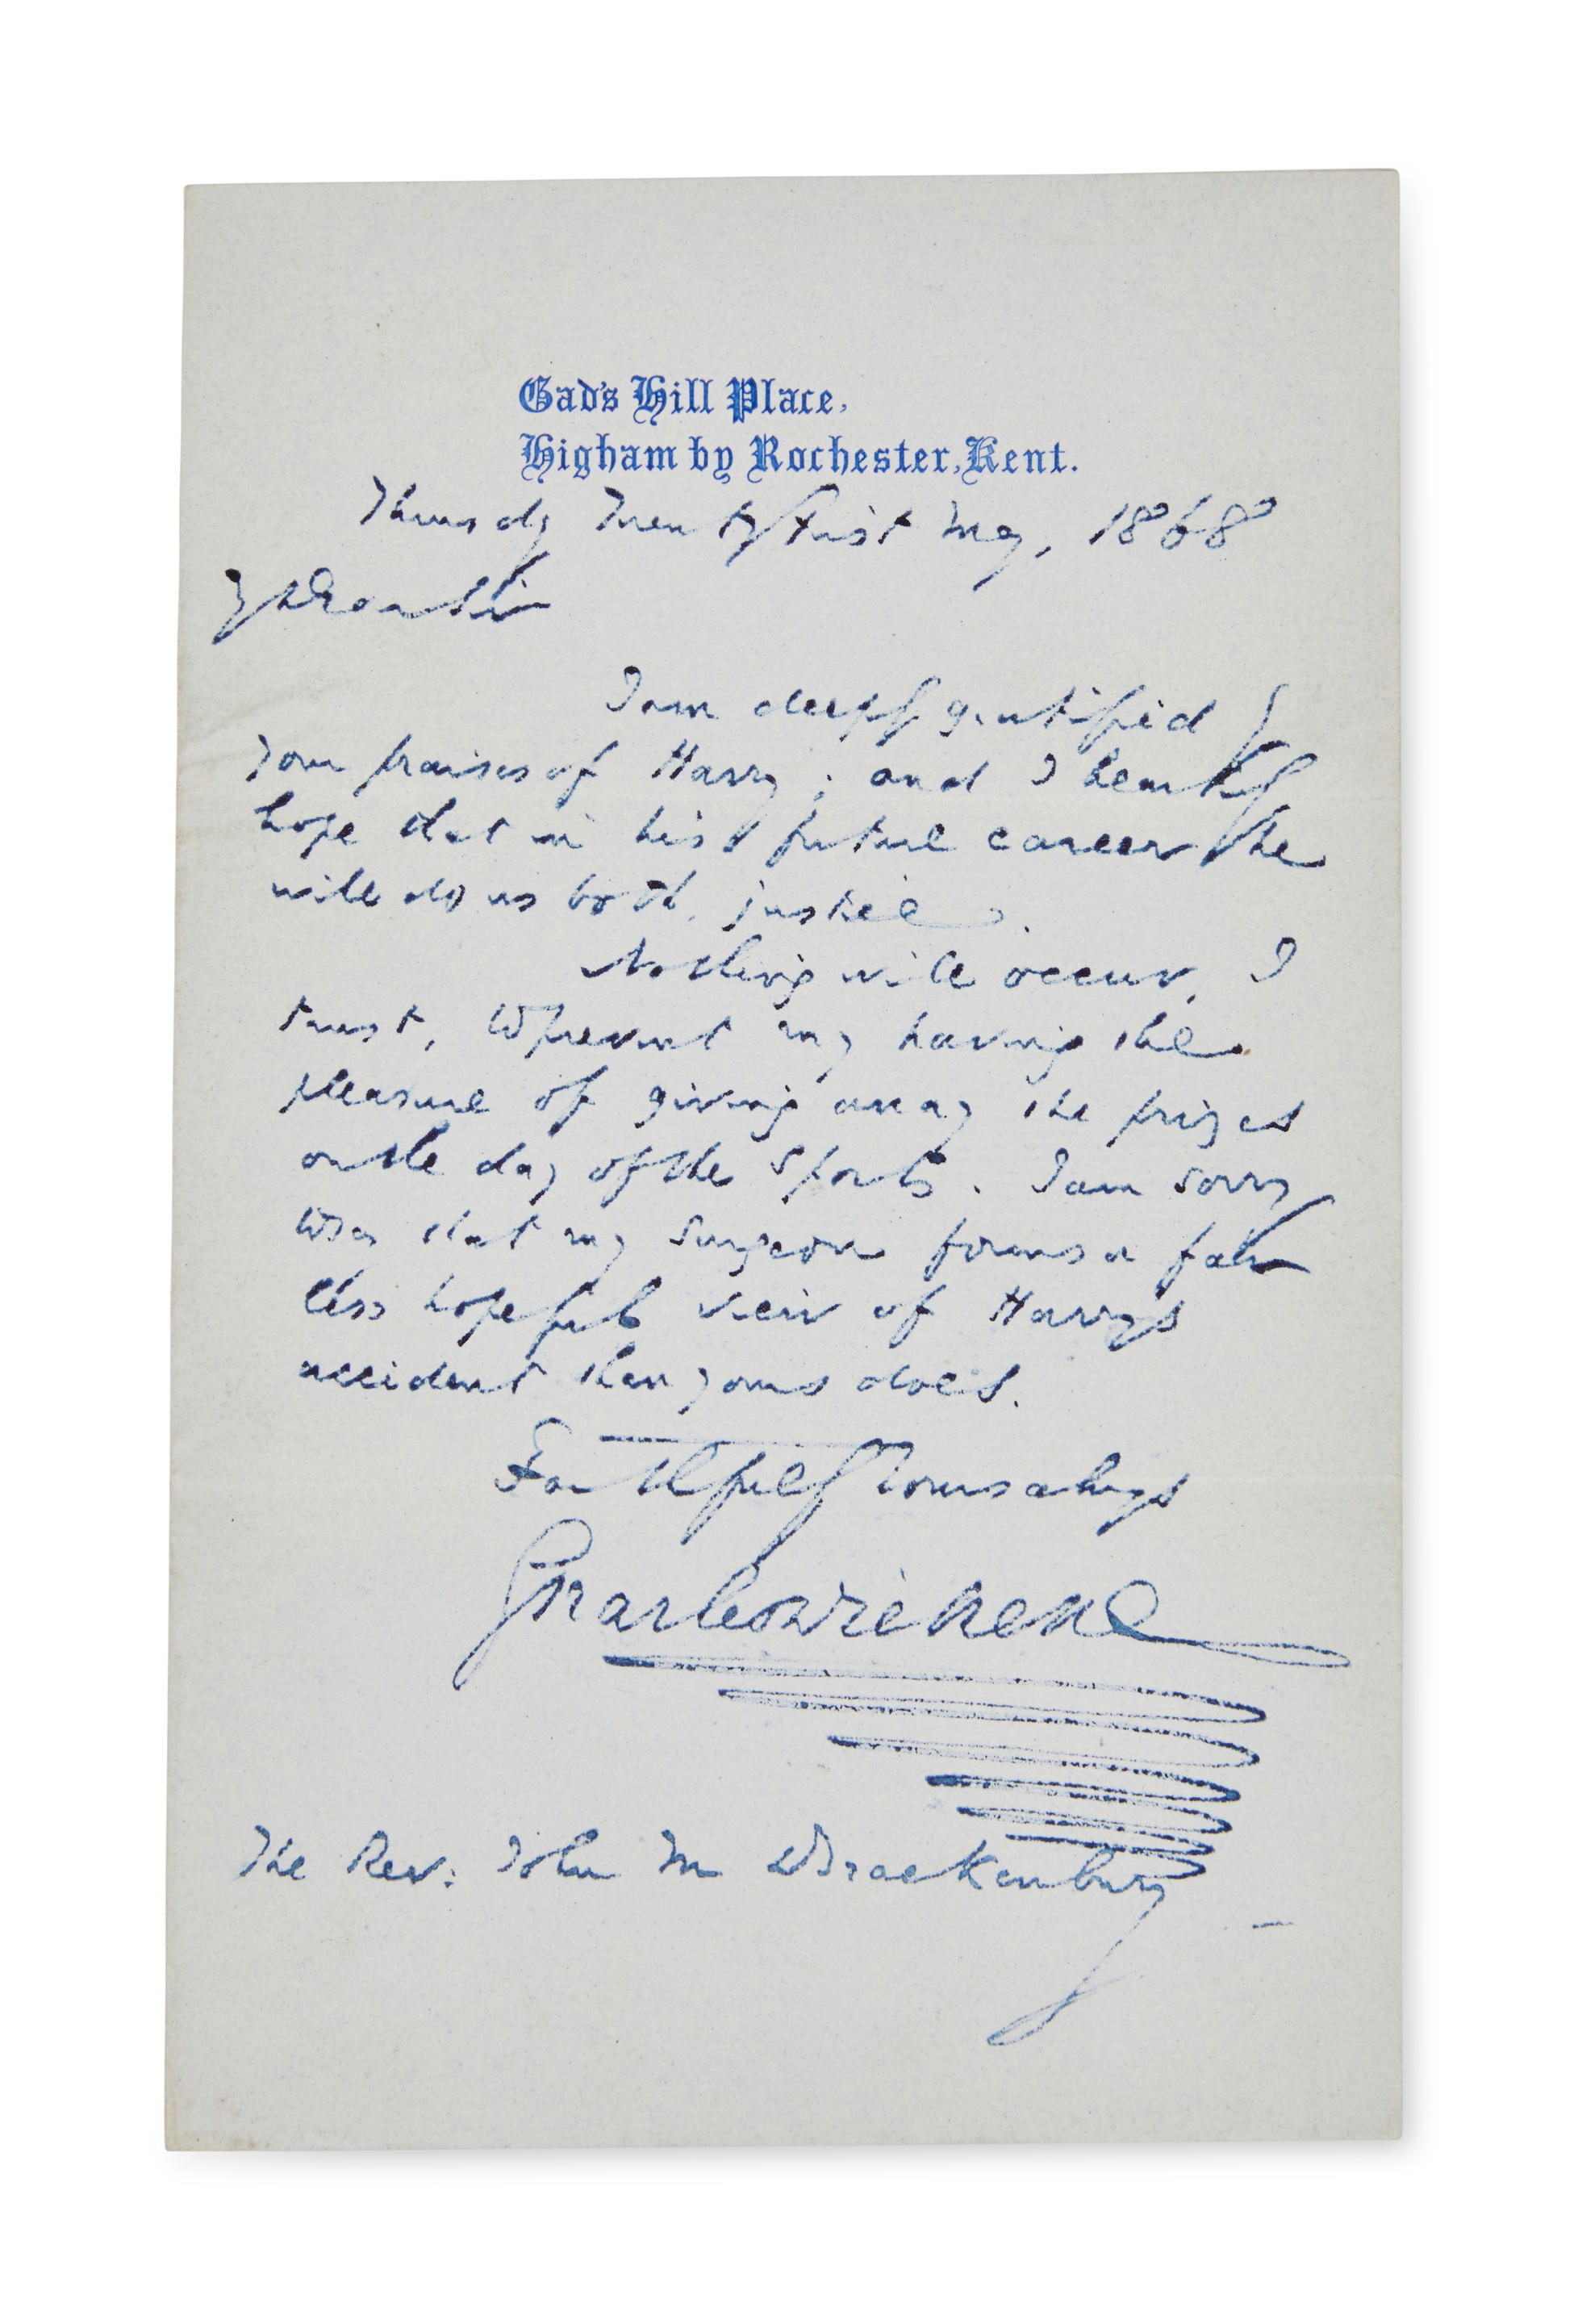 Gad's Hill Place,
Higham by Rochester, Kent.
Thursday Twenty First May, 1868
My Dear Sir
I am deeply gratified by
your praises of Harry; and I heartily
hope that in his future career he
will do us both justice.
Nothing will occur, I
trust, to prevent my having the
pleasure of giving away the prizes
on the day of the Sports. I am sorry
to say that my Surgeon forms a far
less hopeful view of Harry's
accident than yours does.
Faithfully Yours always
Charles Dickens
The Rev: John M Brackenbury